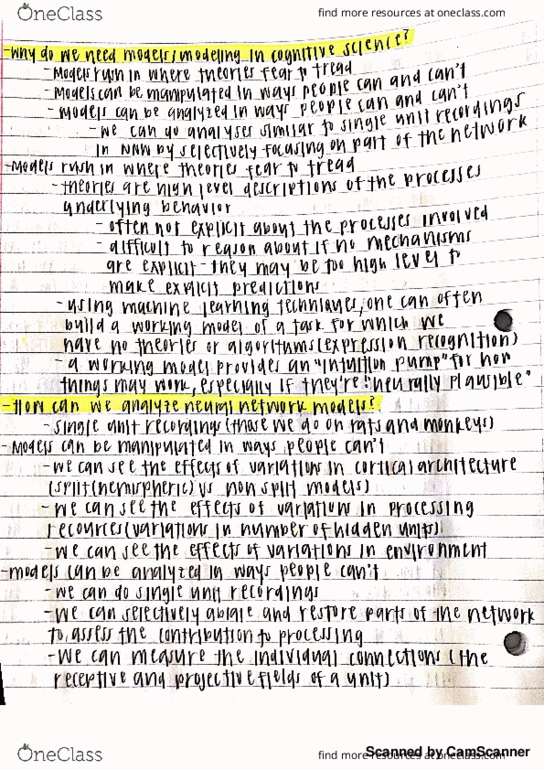 OneClass
find more resources at oneclass.com
-Why do we need models/modeling in cognitive science?
-Models rush in where theories fear to tread
-Models can be manipulated in ways people can and can't
-Models can be analyzed in ways people can and can't
-we can do analyses similar to single unit recordings
in NNW by selectively focusing on part of the network
-Models rush in where theories fear to tread
-theories are high level descriptions of the processes
underlying behavior
-often not explicit about the processes involved
-difficult to reason about if no mechanisms
are explicit-they may be too high level to
make explicit predictions
-using machine learning techniques, one can often
build a working model of a task for which we
have no theories or algorithms (expression recognition)
-a working model provides an "intuition pump" for how
things may work, especially if they're "neurally plausible"
-How can we analyze neural network models?
-single unit recordings (those we do on rats and monkeys)
-Models can be manipulated in ways people can't
-we can see the effects of variations in cortical architecture
(split (hemispheric) vs non split models)
-we can see the effects of variations in processing
recources (variations in number of hidden units)
-we can see the effects of variations in environment
-models can be analyzed in ways people can't
-we can do single unit recordings
-we can selectively ablate and restore parts of the network
to assess the contribution to processing
-We can measure the individual connections (the
receptive and projective fields of a unit)
OneClass
find more resources at oneclass.com
Scanned by CamScanner